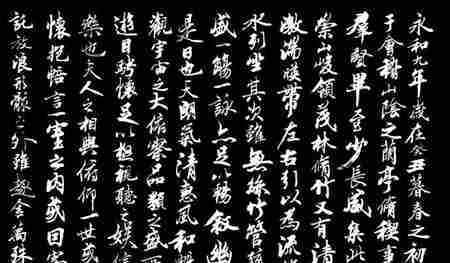 永和九年歲在癸丑暮春之初
于會稽山陰之蘭亭脩稧事
羣賢畢至少長咸集此
崇山峻領茂林脩竹又有清
激湍暎帶左右引以為流
水列坐其次雖無絲竹管
盛一觴一詠亦足以暢敘幽
是日也天朗氣清惠風和暢
觀宇宙之大俯察品類之盛所
遊目騁懷足以極視聽之娛信
樂也夫人之相與俯仰一世或
懷抱悟言一室之內或因寄
託放浪形骸之外雖趣舍萬殊